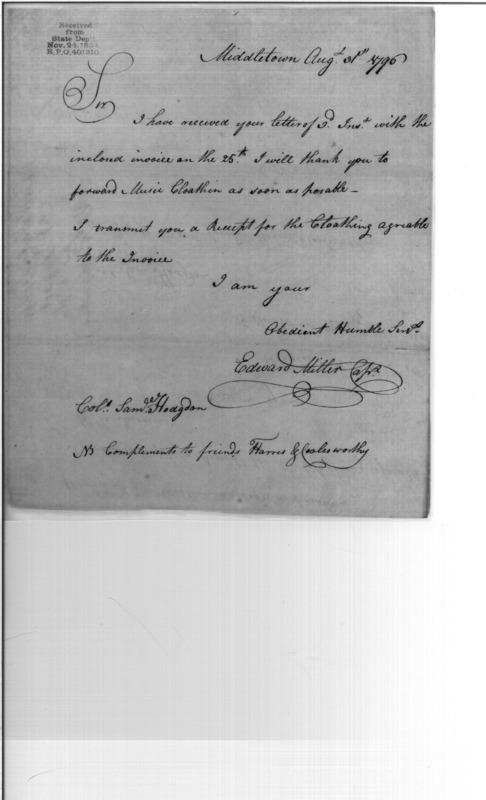 Received
from
State Dep't.
Nov. 24, 1894
R.P.O. 401310.
Middletown Augt. 31st 1796
Sir
I have received your letter of 3d. Inst. with the
inclosd invoice on the 25th. I will thank you to
forward Music Cloathin as soon as posable—
I transmet you a Receipt for the Cloathing agreable
to the Invoice
I am your
Obedient Humble Servt.
Edward Miller Capt.
Colo. Saml. Hodgdon
NB Complements to friends Harres & Coalesworthy